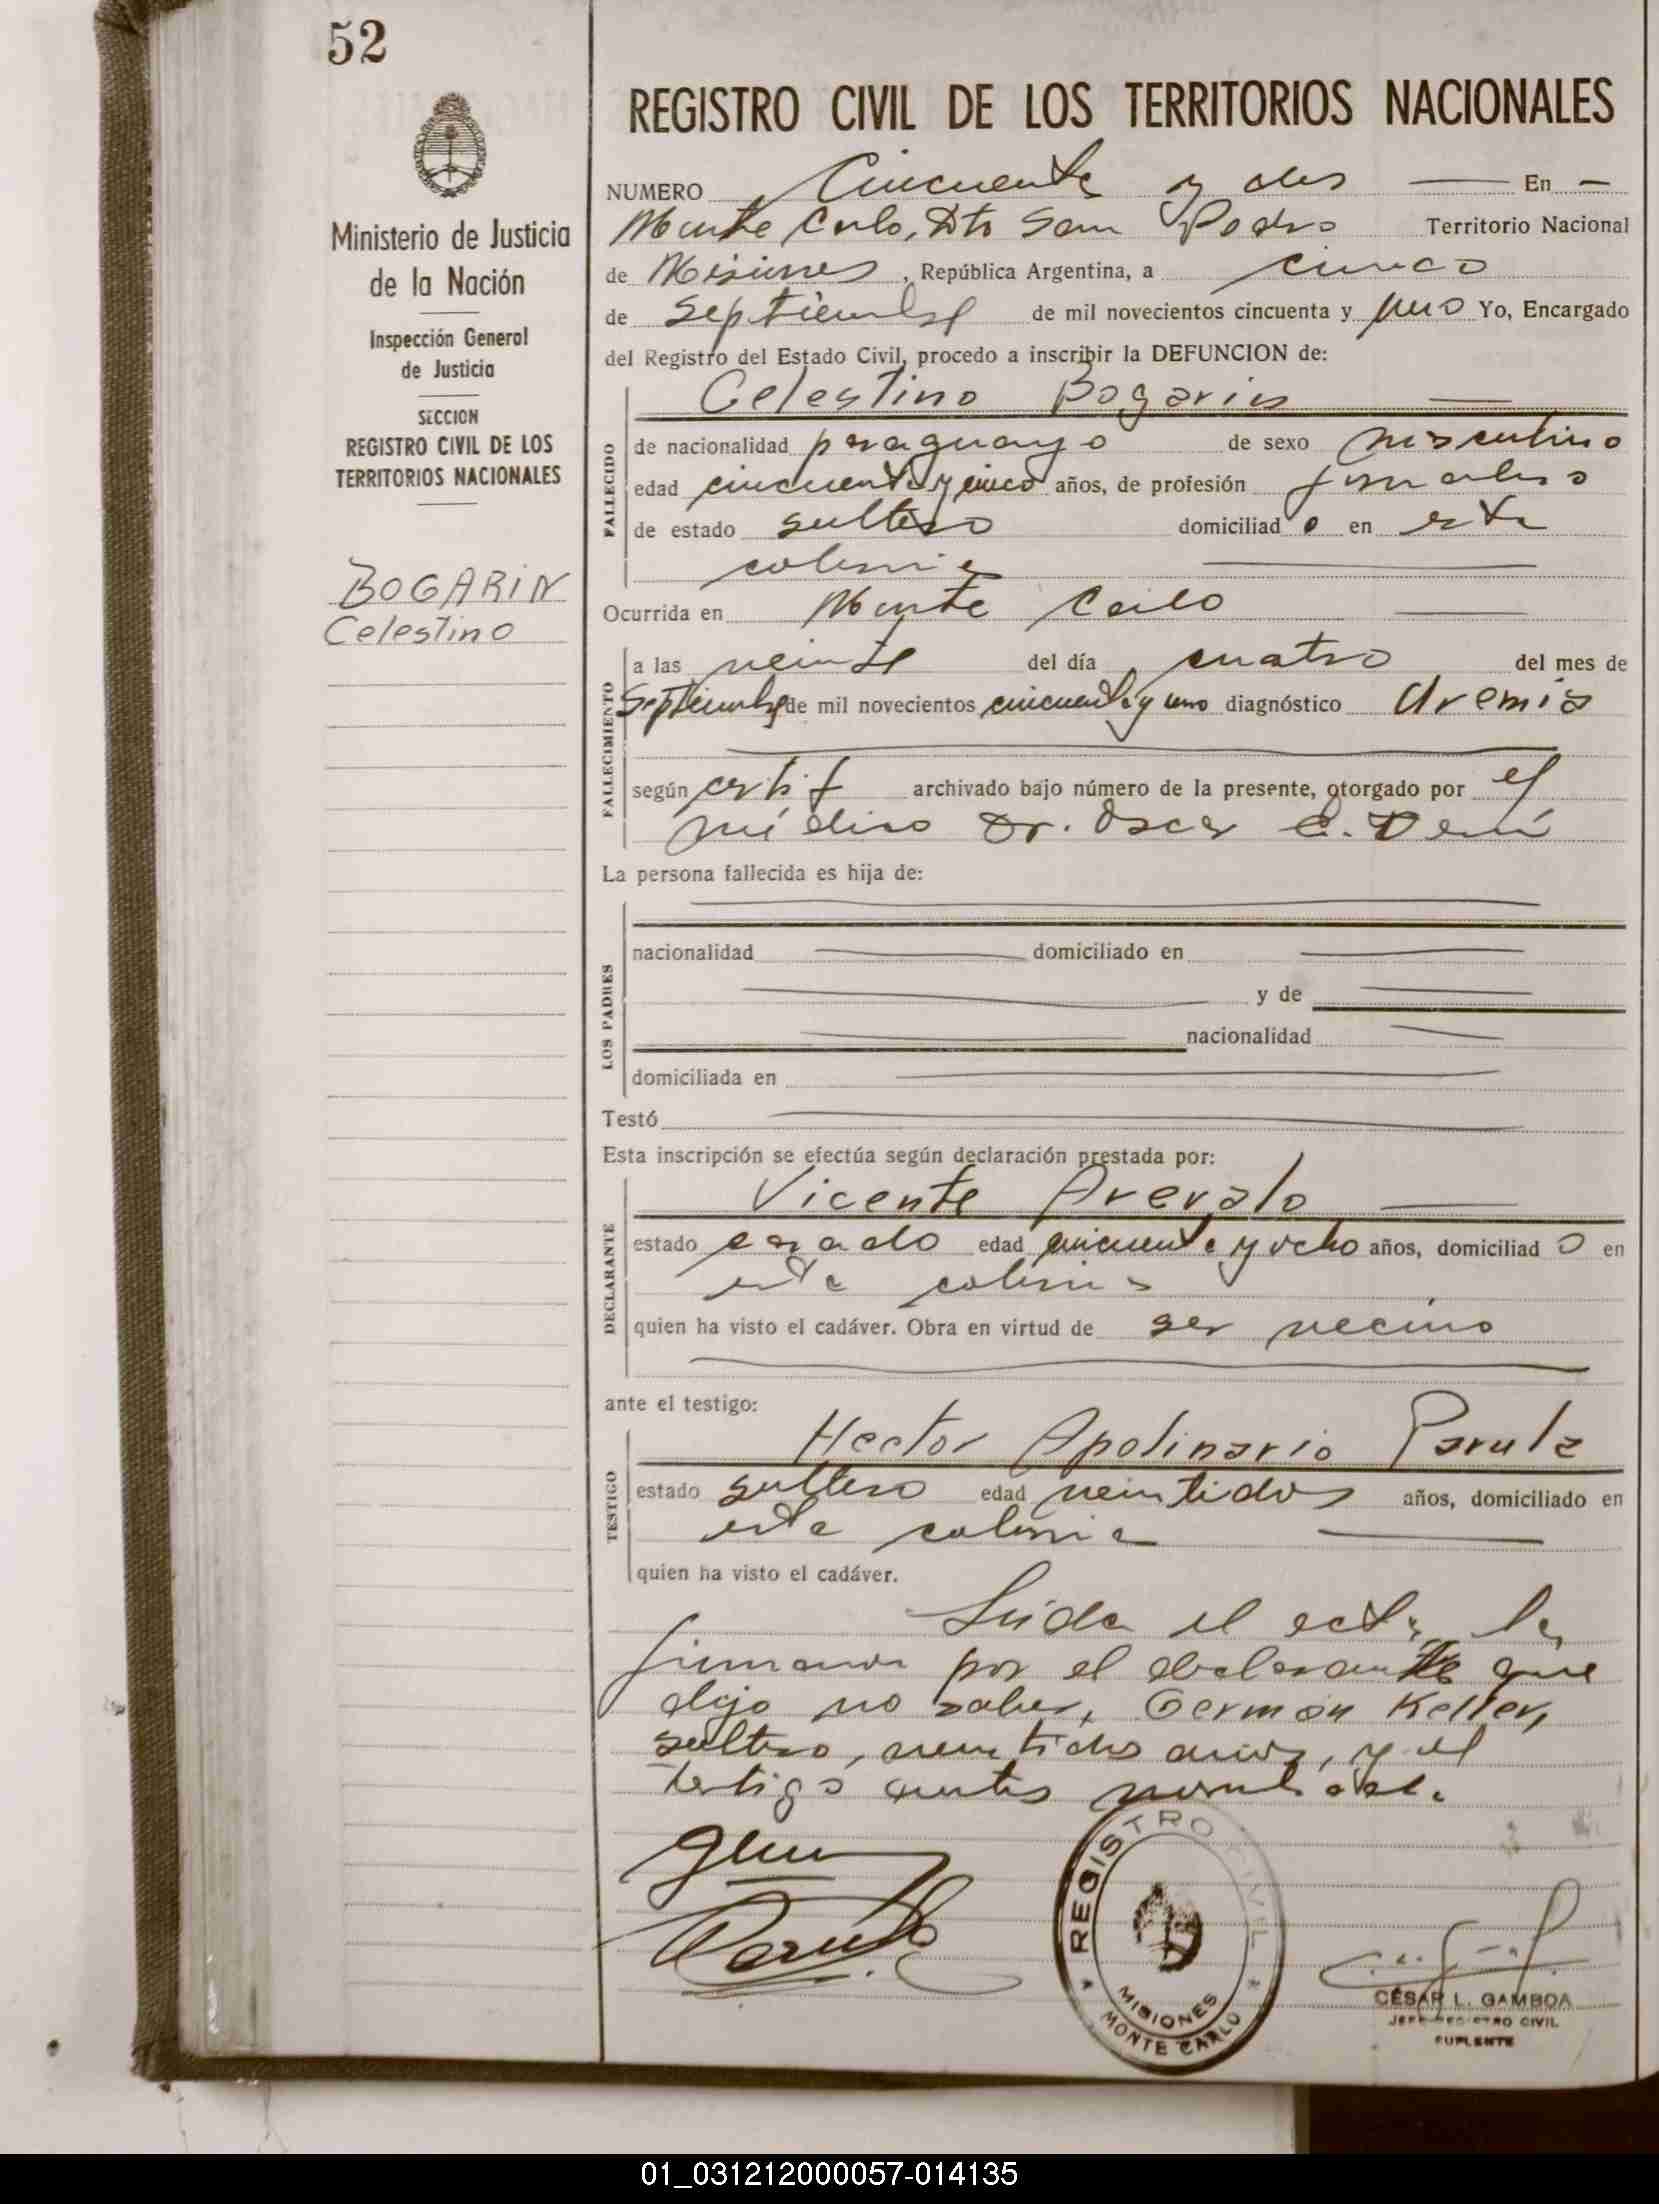 52
Ministerio de Justicia
de la Nación
Inspección General
de Justicia
SECCION
REGISTRO CIVIL DE LOS
TERRITORIOS NACIONALES
BOGARIN
Celestino
REGISTRO CIVIL DE LOS TERRITORIOS NACIONALES
NUMERO Cincuenta y dos En
Monte Carlo, Dto San Pedro Territorio Nacional
de Misiones, República Argentina, a cinco
de Septiembre de mil novecientos cincuenta y uno Yo, Encargado
del Registro del Estado Civil, procedo a inscribir la DEFUNCION de:
Celestino Bogarin
FALLECIDO
de nacionalidad paraguayo de sexo masculino
edad cincuenta y cinco años, de profesión jornalero
de estado soltero domiciliado en esta
colonia
Ocurrida en Monte Carlo
FALLECIMIENTO
a las veinte del día cuatro del mes de
Septiembre de mil novecientos cincuenta y uno diagnóstico Uremia
según certif archivado bajo número de la presente, otorgado por el
médico Dr. Oscar
La persona fallecida es hija de:
LOS PADRES
nacionalidad domiciliado en
y de
nacionalidad
domiciliada en
Testó
Esta inscripción se efectúa según declaración prestada por:
Vicente Arevalo
DECLARANTE
estado casado edad cincuenta y ocho años, domiciliado en
esta colonia
quien ha visto el cadáver. Obra en virtud de ser vecino
ante el testigo:
Hector Apolinario Parula
TESTIGO
estado soltero edad veintidos años, domiciliado en
esta colonia
quien ha visto el cadáver.
Leída el acta, la
firmaron por el declarante que
dijo no saber, Germán Keller,
soltero, veintidos años, y el
testigo antes nombrado.
REGISTRO CIVIL
MISIONES
MONTE CARLO
CÉSAR L. GAMBOA
JEFE REGISTRO CIVIL
SUPLENTE
01_031212000057-014135